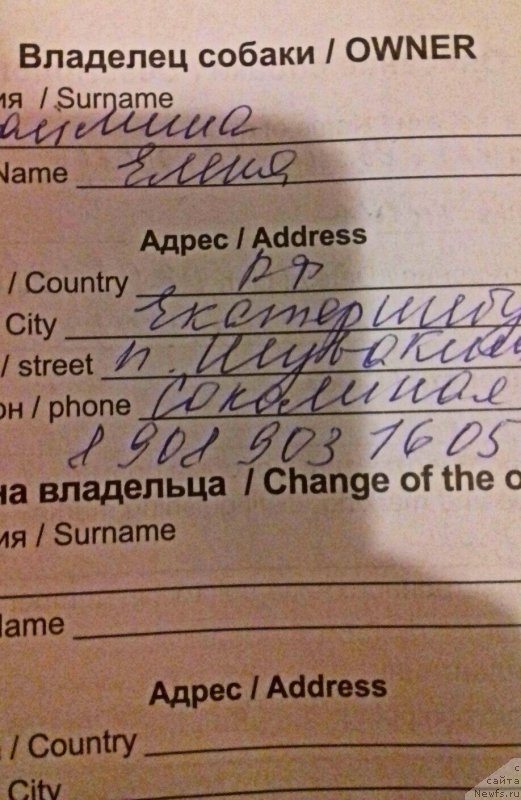 Владелец собаки / OWNER
ия / Surname
Name Елена
Адрес / Address
/ Country РФ
City Екатеринбу
/ street п. Шувакиш
он / phone
8 908 903 1605
на владельца / Change of the o
ия / Surname
Name
Адрес / Address
/ Country
City
с
сайта
Newfs.ru